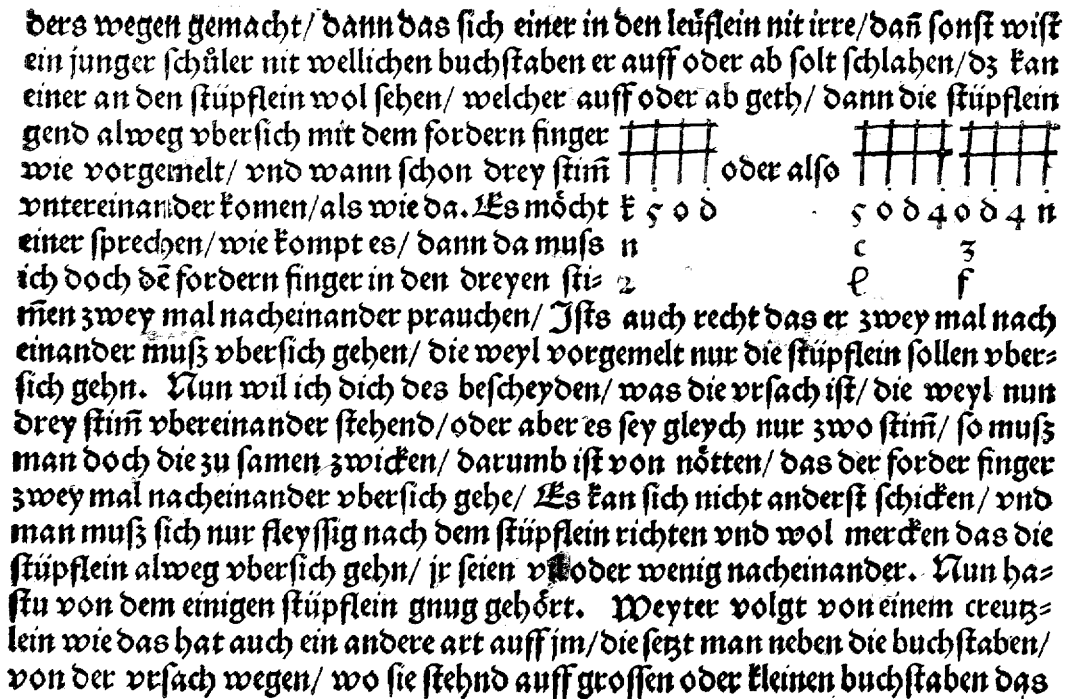 ders wegen gemacht/ dann das sich einer in den leüflein nit irre/dañ sonst wist
ein junger schůler nit wellichen buchstaben er auff oder ab solt schlahen/dz kan
einer an den stüpflein wol sehen/ welcher auff oder ab geth/ dann die stüpflein
gend alweg vbersich mit dem fordern finger
wie vorgemelt/ vnd wann schon drey stim̄ oder also
vntereinander komen/als wie da. Es möcht k 5 o d 5 o d 4 o d 4 n
einer sprechen/wie kompt es/ dann da muſs n c z
ich doch dē fordern finger in den dreyen sti⸗ 2  l f
m̄en zwey mal nacheinander prauchen/ Ists auch recht das er zwey mal nach
einander muß vbersich gehen/ die weyl vorgemelt nur die stüpflein sollen vber⸗
sich gehn. Nun wil ich dich des bescheyden/ was die vrsach ist/ die weyl nun
drey stim̄ vbereinander stehend/oder aber es sey gleych nur zwo stim̄/ so muß
man doch die zu samen zwicken/ darumb ist von nötten/ das der forder finger
zwey mal nacheinander vbersich gehe/ Es kan sich nicht anderst schicken/ vnd
man muß sich nur fleyssig nach dem stüpflein richten vnd wol mercken das die
stüpflein alweg vbersich gehn/ jr seien oder wenig nacheinander. Nun ha⸗
stu von dem einigen stüpflein gnug gehört. Weyter volgt von einem creutz⸗
lein wie das hat auch ein andere art auff jm/die setzt man neben die buchstaben/
von der vrsach wegen/ wo sie stehnd auff grossen oder kleinen buchstaben das